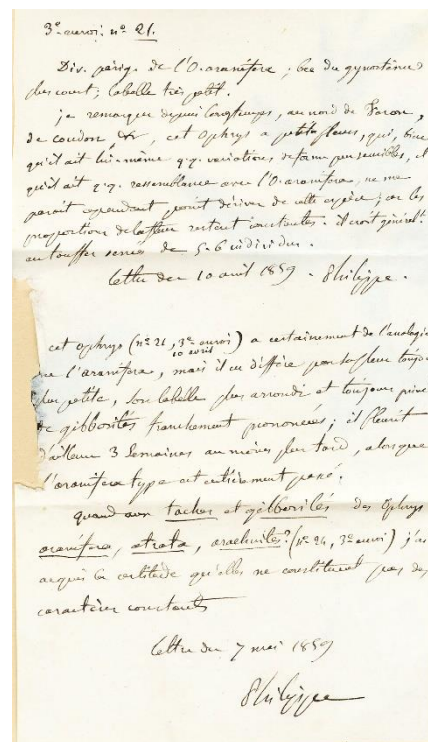 3e envoi: no 21.
Div. périg. de l'O. aranifera; bec du gynostème
plus court; labelle très petit.
je remarque depuis longtemps, au nord de Toron,
de coudon &c, cet Ophrys a petites fleurs, qui, bien
qu'il ait lui-même q.q. variations de forme peu sensibles, et
qu'il ait q.q. ressemblance avec l'O. aranifera, ne me
parait cependant point dériver de cette espèce; car les
proportions de la fleur restent constantes. il croit généralt.
en touffes serrées de 5-6 individus.
lettre du 10 avril 1859 - Philippe.
cet ophrys (no 21, 3e envoi) a certainement de l'analogie
10 avril
l'aranifera, mais il en diffère par sa fleur toujo
plus petite, son labelle plus arrondi et toujours
de gibbosités franchement prononcées; il fleurit
d'ailleurs 3 semaines au moins plus tard, alors que
l'aranifera type est entièrement passé.
quand aux taches et gibbosités des Ophrys
aranifera, atrata, arachnites? (no 24, 3e envoi) j'ai
acquis la certitude qu'elles ne constituent pas des
caractères constants
lettre du 7 mai 1859
Philippe